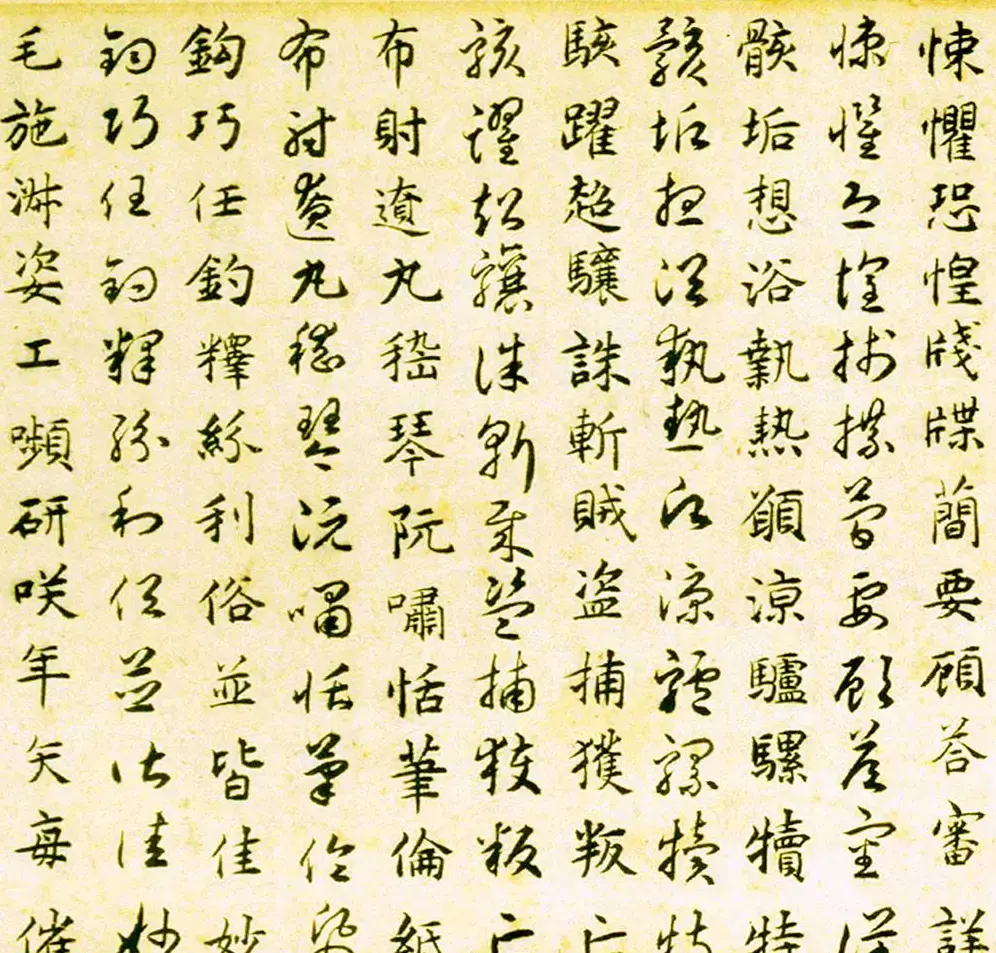 悚懼恐惶牋牒簡要顧荅審詳
悚懼恐惶牋牒簡要顧荅審詳
骸垢想浴執熱願涼驢騾犢特
骸垢想浴執熱願涼驢騾犢特
駭躍超驤誅斬賊盜捕獲叛亡
駭躍超驤誅斬賊盜捕獲叛亡
布射遼丸嵇琴阮嘯恬筆倫紙
布射遼丸嵇琴阮嘯恬筆倫紙
鈎巧任釣釋紛利俗並皆佳妙
鈎巧任釣釋紛利俗並皆佳妙
毛施淑姿工嚬研咲年矢每催